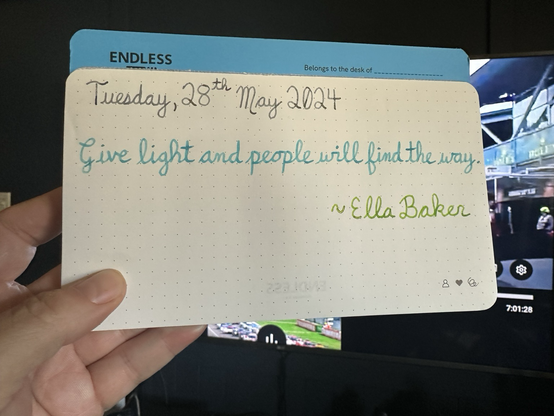 ENDLESS
Belongs to the desk of
Tuesday, 28th May 2024
Give light and people will find the way.
~ Ella Baker
ENDLESS
7:01:28